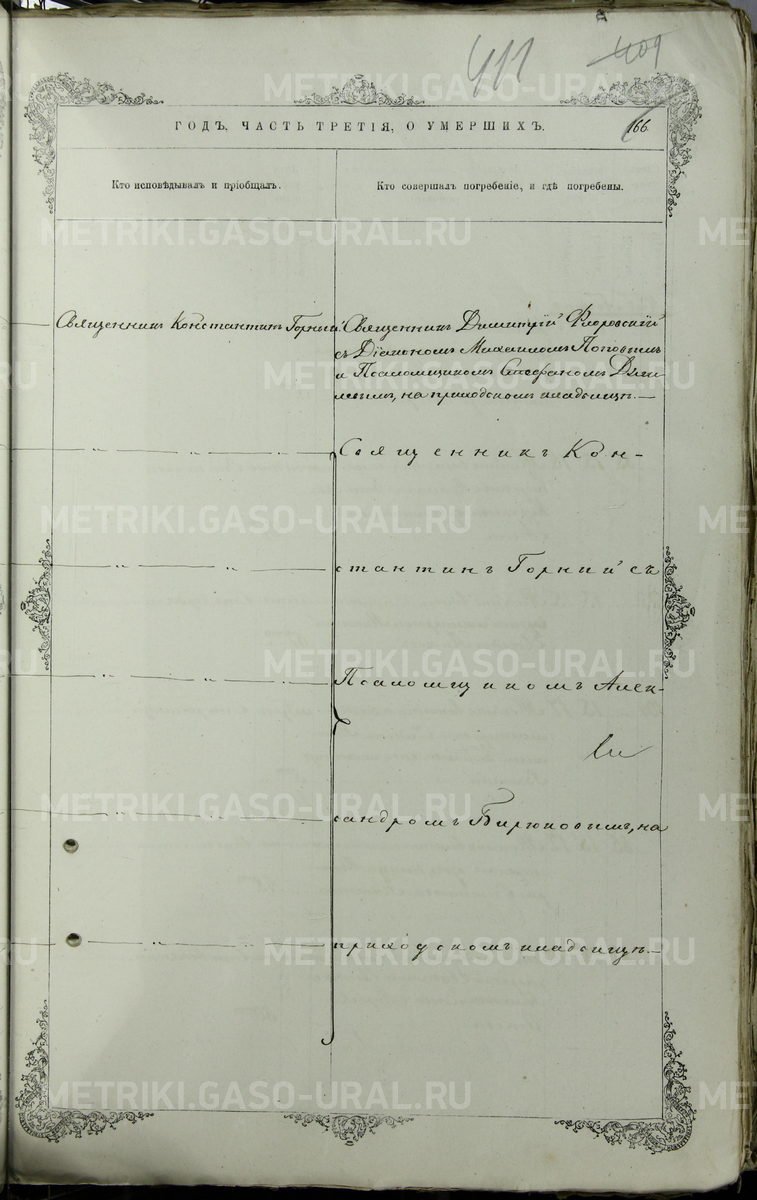 411
409
ГОДЪ. ЧАСТЬ ТРЕТІЯ, О УМЕРШИХЪ.
166.
Кто исповѣдывалъ и пріобщалъ.
Кто совершалъ погребеніе, и гдѣ погребены.
Священникъ Константинъ Горный
Священникъ Димитрій Флоровскій
съ Діакономъ Михаиломъ Поповымъ
и Псаломщикомъ Стефаномъ
на приходскомъ кладбищѣ.—
Священникъ Кон-
стантинъ Горный съ
Псаломщикомъ Алек-
сандромъ Бирюковымъ, на
приходскомъ кладбищѣ.—
METRIKI.GASO-URAL.RU